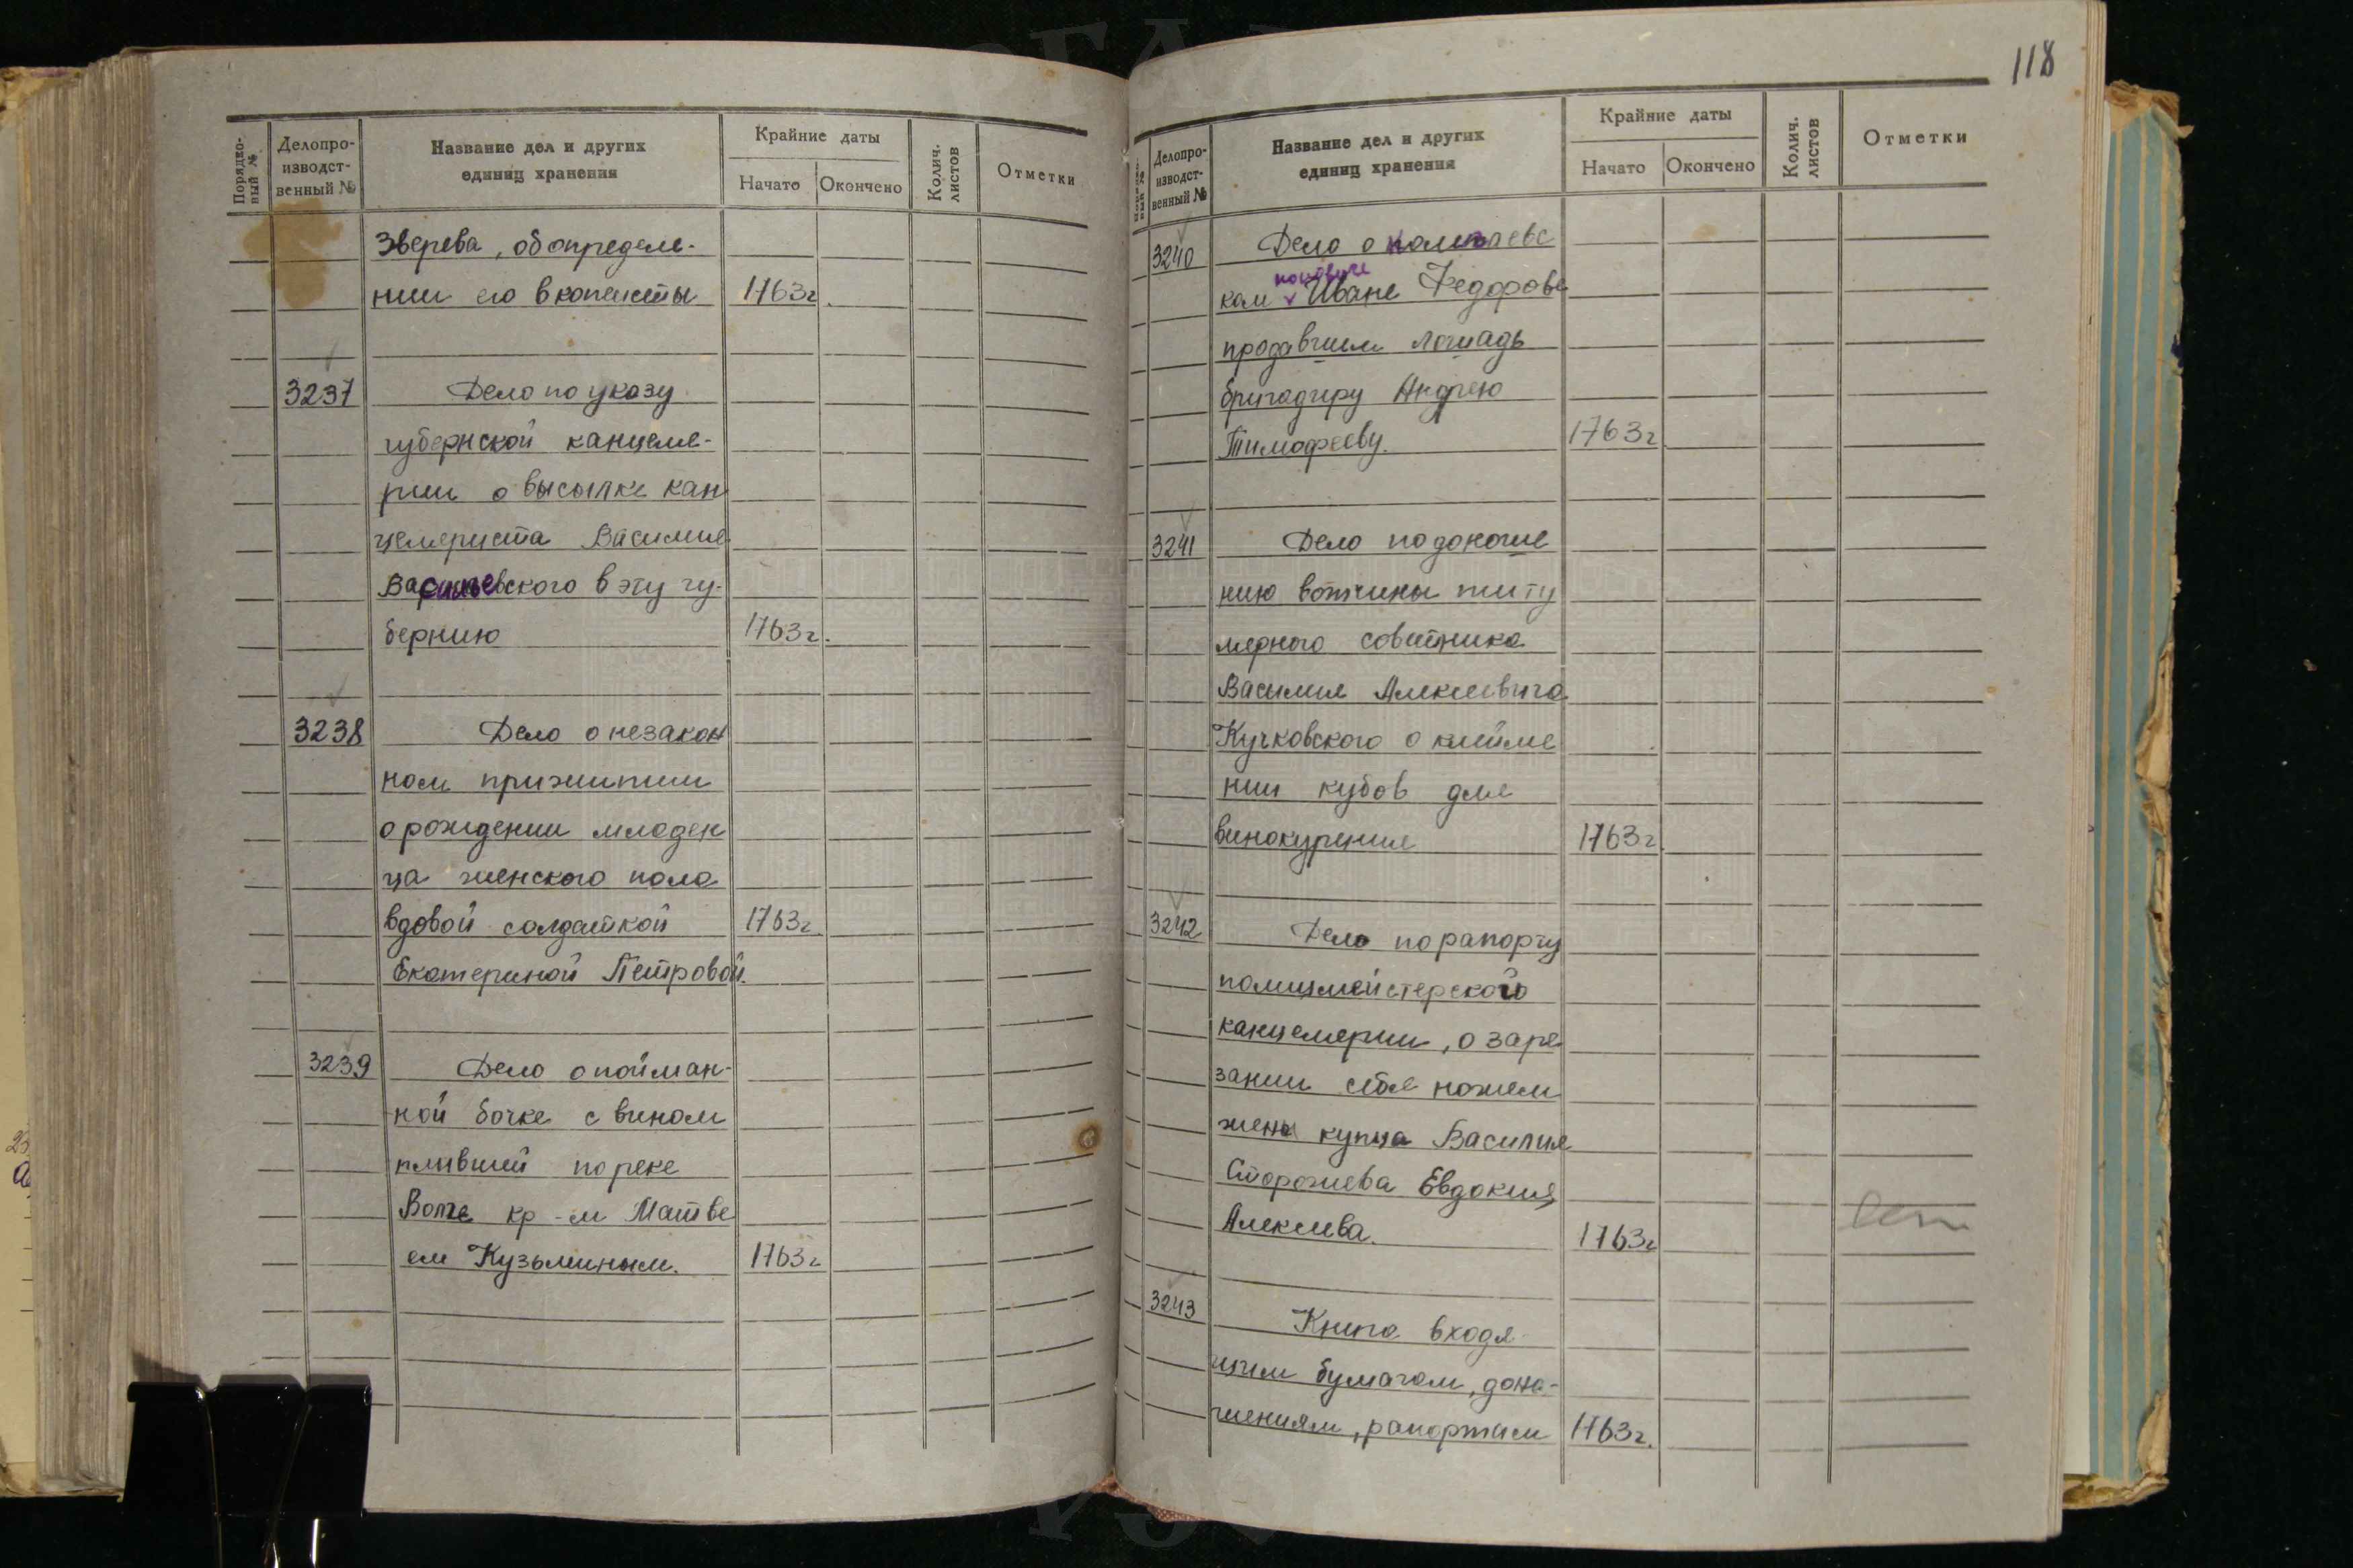 Порядко-
вый №
Делопро-
изводст-
венный №
Название дел и других
единиц хранения
Крайние даты
Начато
Окончено
Колич.
листов
Отметки
Зверева, об определе-
нии его в кописты 1763г.
3237 Дело по указу
губернской канцеля-
рии о высылке кан
целяриста Василия
Васильевского в эту гу-
бернию 1763г.
3238 Дело о незакон
ном прижитии
о рождении младен
ца женского пола
вдовой солдаткой 1763г
Екатериной Петровой.
3239 Дело о пойман-
ной бочке с вином
плывшей по реке
Волге кр-м Матве
ем Кузьминым. 1763г
118
Порядко-
вый №
Делопро-
изводст-
венный №
Название дел и других
единиц хранения
Крайние даты
Начато
Окончено
Колич.
листов
Отметки
3240 Дело о
ком поповиче Иване Федорове
продавшем лошадь
бригадиру Андрею
Тимофееву. 1763г
3241 Дело по доноше
нию вотчины титу
лярного советника
Василия Алексеевича
Кучковского о клейме
нии кубов для
винокурения 1763г.
3242 Дело по рапорту
полицмейстерской
канцелярии, о заре
зании себя ножем
жены купца Василия
Сторожева Евдокия
Алексеева. 1763г
3243 Книга входя
щим бумагам, доно-
шениям, рапортам 1763г.